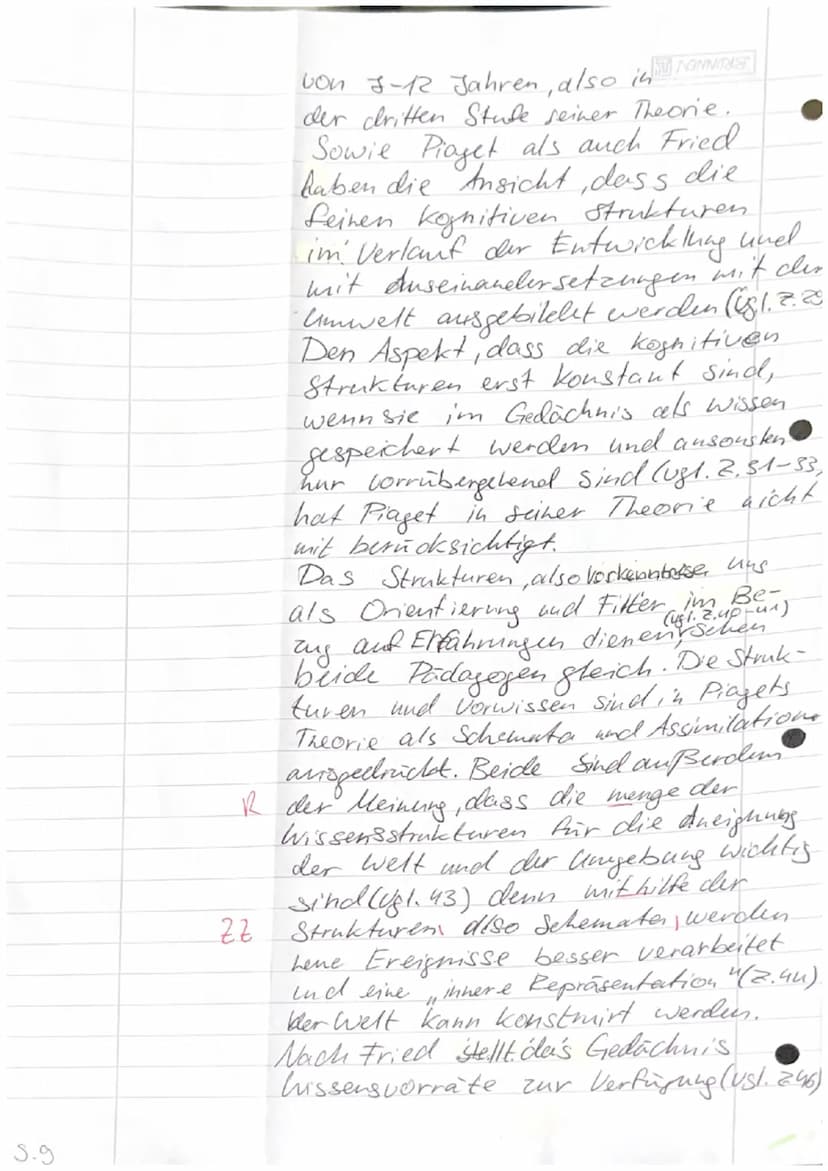 von 7-12 Jahren, also in
der dritten Stufe seiner Theorie.
Sowie Piaget als auch Fried
haben die Ansicht, dass die
feinen kognitiven Strukturen
im Verlauf der Entwicklung und
mit Auseinandersetzungen mit der
Umwelt ausgebildet werden (vgl. Z. 29
Den Aspekt, dass die kognitiven
Strukturen erst konstant sind,
wenn sie im Gedächnis als wissen
gespeichert werden und ansonsten
nur vorrübergehend sind (vgl. Z. 31-33,
hat Piaget in seiner Theorie nicht
mit berücksichtigt.
Das Strukturen, also Vorkenntnisse, uns
als Orientierung und Filter im Be-
(vgl. Z. 40-41)
zug auf Erfahrungen dienen, sehen
beide Pädagogen gleich. Die Struk-
turen und Vorwissen sind in Piagets
Theorie als Schemata und Assimilation
ausgedrückt. Beide sind außerdem
R der Meinung, dass die menge der
Wissensstrukturen für die Aneignung
der Welt und der Umgebung wichtig
sind (vgl. 43) denn mithilfe der
ZZ Strukturen, also Schemata, werden
neue Ereignisse besser verarbeitet
und eine „innere Repräsentation" (Z. 44)
der Welt kann konstruirt werden.
Nach Fried stellt das Gedächnis
Wissensvorräte zur Verfügung (vgl. Z 46)
S. 9